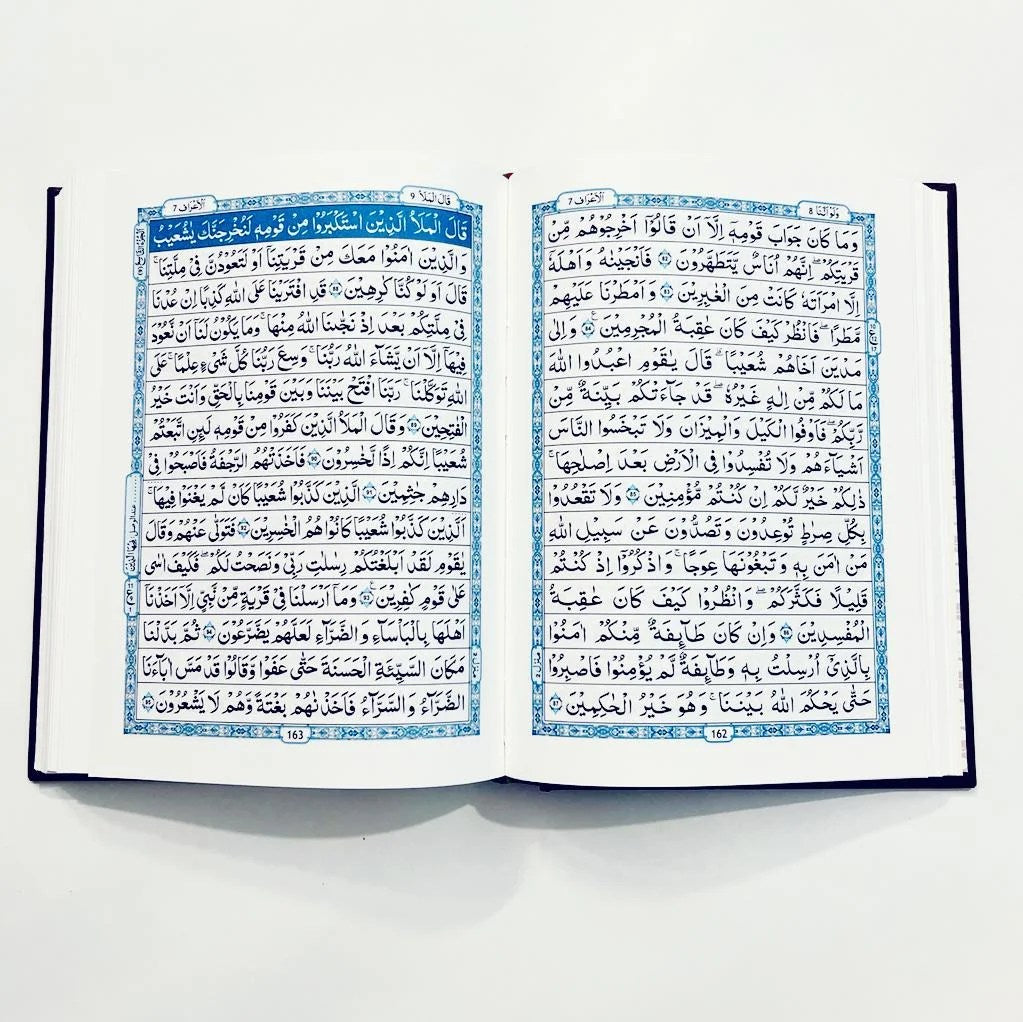 الاعراف 7
ولو اننا 8
وَمَا كَانَ جَوَابَ قَوْمِهٖٓ اِلَّآ اَنْ قَالُوْٓا اَخْرِجُوْهُمْ مِّنْ
قَرْيَتِكُمْ ۖ اِنَّهُمْ اُنَاسٌ يَّتَطَهَّرُوْنَ 82 فَاَنْجَيْنٰهُ وَاَهْلَهٗٓ
اِلَّا امْرَاَتَهٗ كَانَتْ مِنَ الْغٰبِرِيْنَ 83 وَاَمْطَرْنَا عَلَيْهِمْ
مَّطَرًا ۖ فَانْظُرْ كَيْفَ كَانَ عَاقِبَةُ الْمُجْرِمِيْنَ 84 وَاِلٰى
مَدْيَنَ اَخَاهُمْ شُعَيْبًا ۗ قَالَ يٰقَوْمِ اعْبُدُوا اللّٰهَ
مَا لَكُمْ مِّنْ اِلٰهٍ غَيْرُهٗ ۖ قَدْ جَآءَتْكُمْ بَيِّنَةٌ مِّنْ
رَّبِّكُمْ ۖ فَاَوْفُوا الْكَيْلَ وَالْمِيْزَانَ وَلَا تَبْخَسُوا النَّاسَ
اَشْيَآءَهُمْ وَلَا تُفْسِدُوْا فِى الْاَرْضِ بَعْدَ اِصْلَاحِهَا ۚ
ذٰلِكُمْ خَيْرٌ لَّكُمْ اِنْ كُنْتُمْ مُّؤْمِنِيْنَ 85 وَلَا تَقْعُدُوْا
بِكُلِّ صِرَاطٍ تُوْعِدُوْنَ وَتَصُدُّوْنَ عَنْ سَبِيْلِ اللّٰهِ
مَنْ اٰمَنَ بِهٖ وَتَبْغُوْنَهَا عِوَجًا ۚ وَاذْكُرُوْٓا اِذْ كُنْتُمْ
قَلِيْلًا فَكَثَّرَكُمْ ۖ وَانْظُرُوْا كَيْفَ كَانَ عَاقِبَةُ
الْمُفْسِدِيْنَ 86 وَاِنْ كَانَ طَآئِفَةٌ مِّنْكُمْ اٰمَنُوْا
بِالَّذِىْٓ اُرْسِلْتُ بِهٖ وَطَآئِفَةٌ لَّمْ يُؤْمِنُوْا فَاصْبِرُوْا
حَتّٰى يَحْكُمَ اللّٰهُ بَيْنَنَا ۚ وَهُوَ خَيْرُ الْحٰكِمِيْنَ 87
162
الاعراف 7
قال الملا 9
قَالَ الْمَلَاُ الَّذِيْنَ اسْتَكْبَرُوْا مِنْ قَوْمِهٖ لَنُخْرِجَنَّكَ يٰشُعَيْبُ
وَالَّذِيْنَ اٰمَنُوْا مَعَكَ مِنْ قَرْيَتِنَآ اَوْ لَتَعُوْدُنَّ فِىْ مِلَّتِنَا ۚ
قَالَ اَوَلَوْ كُنَّا كٰرِهِيْنَ 88 قَدِ افْتَرَيْنَا عَلَى اللّٰهِ كَذِبًا اِنْ عُدْنَا
فِىْ مِلَّتِكُمْ بَعْدَ اِذْ نَجّٰىنَا اللّٰهُ مِنْهَا ۚ وَمَا يَكُوْنُ لَنَآ اَنْ نَّعُوْدَ
فِيْهَآ اِلَّآ اَنْ يَّشَآءَ اللّٰهُ رَبُّنَا ۚ وَسِعَ رَبُّنَا كُلَّ شَىْءٍ عِلْمًا ۚ عَلَى
اللّٰهِ تَوَكَّلْنَا ۚ رَبَّنَا افْتَحْ بَيْنَنَا وَبَيْنَ قَوْمِنَا بِالْحَقِّ وَاَنْتَ خَيْرُ
الْفٰتِحِيْنَ 89 وَقَالَ الْمَلَاُ الَّذِيْنَ كَفَرُوْا مِنْ قَوْمِهٖ لَئِنِ اتَّبَعْتُمْ
شُعَيْبًا اِنَّكُمْ اِذًا لَّخٰسِرُوْنَ 90 فَاَخَذَتْهُمُ الرَّجْفَةُ فَاَصْبَحُوْا فِىْ
دَارِهِمْ جٰثِمِيْنَ 91 الَّذِيْنَ كَذَّبُوْا شُعَيْبًا كَاَنْ لَّمْ يَغْنَوْا فِيْهَا ۚ
اَلَّذِيْنَ كَذَّبُوْا شُعَيْبًا كَانُوْا هُمُ الْخٰسِرِيْنَ 92 فَتَوَلّٰى عَنْهُمْ وَقَالَ
يٰقَوْمِ لَقَدْ اَبْلَغْتُكُمْ رِسٰلٰتِ رَبِّىْ وَنَصَحْتُ لَكُمْ ۖ فَكَيْفَ اٰسٰى
عَلٰى قَوْمٍ كٰفِرِيْنَ 93 وَمَآ اَرْسَلْنَا فِىْ قَرْيَةٍ مِّنْ نَّبِىٍّ اِلَّآ اَخَذْنَآ
اَهْلَهَا بِالْبَاْسَآءِ وَالضَّرَّآءِ لَعَلَّهُمْ يَضَّرَّعُوْنَ 94 ثُمَّ بَدَّلْنَا
مَكَانَ السَّيِّئَةِ الْحَسَنَةَ حَتّٰى عَفَوْا وَّقَالُوْا قَدْ مَسَّ اٰبَآءَنَا
الضَّرَّآءُ وَالسَّرَّآءُ فَاَخَذْنٰهُمْ بَغْتَةً وَّهُمْ لَا يَشْعُرُوْنَ 95
163